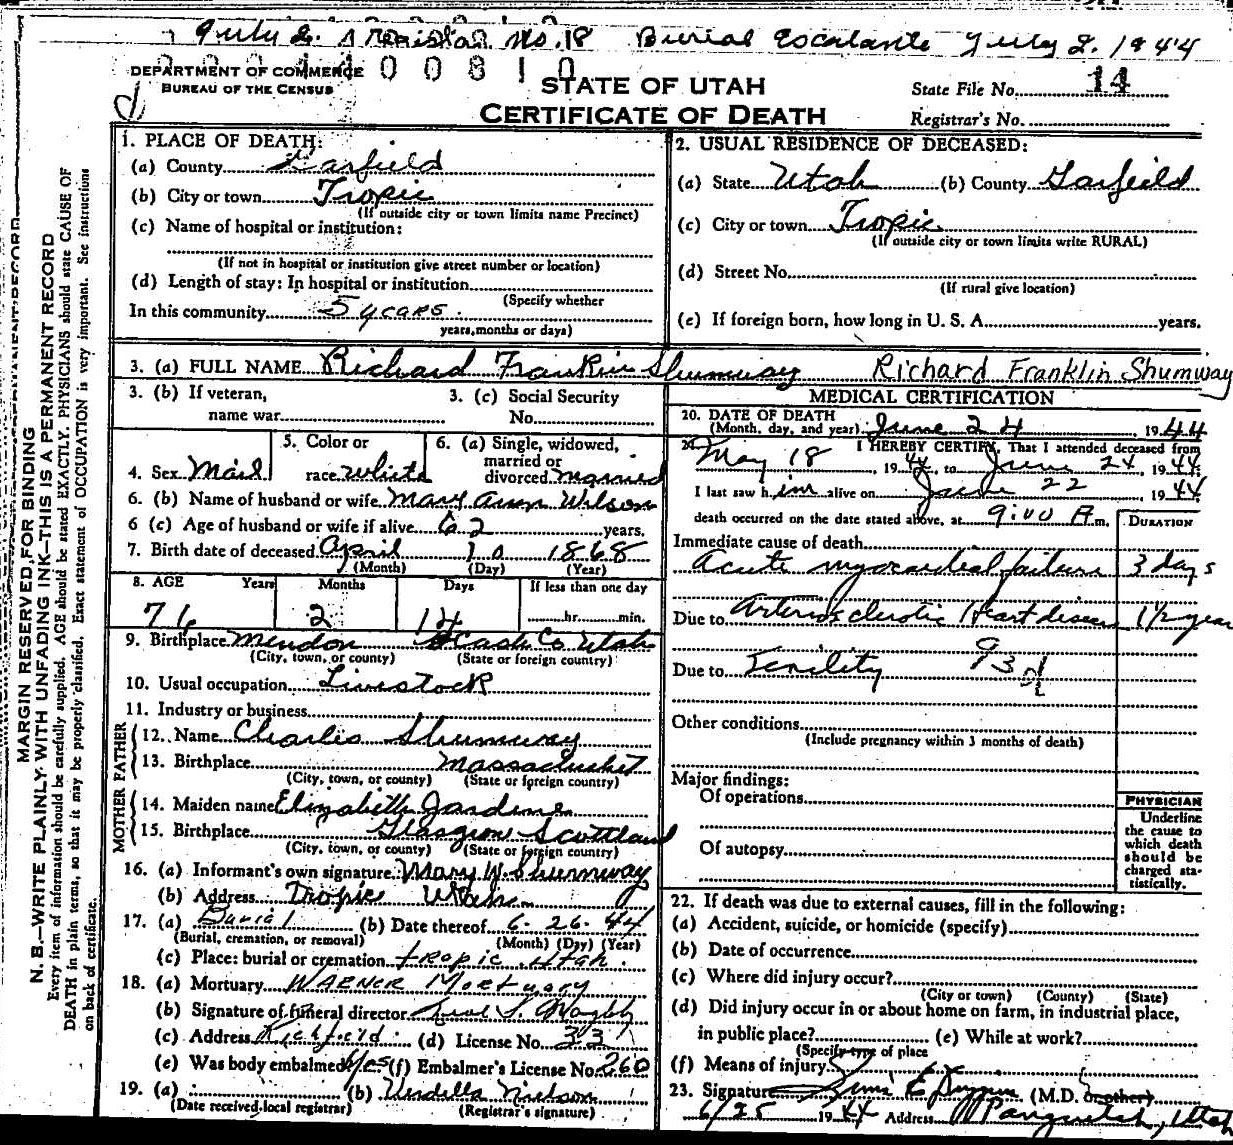 July 2. Registrar No. 18 Burial Escalante July 2. 1944
DEPARTMENT OF COMMERCE
BUREAU OF THE CENSUS
00810
STATE OF UTAH
CERTIFICATE OF DEATH
State File No. 14
Registrar's No.
MARGIN RESERVED FOR BINDING
N. B.—WRITE PLAINLY WITH UNFADING INK—THIS IS A PERMANENT RECORD
Every item of information should be carefully supplied. AGE should be stated EXACTLY. PHYSICIANS should state CAUSE OF
DEATH in plain terms, so that it may be properly classified. Exact statement of OCCUPATION is very important. See instructions
on back of certificate.
1. PLACE OF DEATH:
(a) County Garfield
(b) City or town Tropic
(If outside city or town limits name Precinct)
(c) Name of hospital or institution:
(If not in hospital or institution give street number or location)
(d) Length of stay: In hospital or institution
(Specify whether
In this community 5 years.
years, months or days)
2. USUAL RESIDENCE OF DECEASED:
(a) State Utah (b) County Garfield
(c) City or town Tropic
(If outside city or town limits write RURAL)
(d) Street No.
(If rural give location)
(e) If foreign born, how long in U. S. A. years.
3. (a) FULL NAME Richard Frankin Shumway Richard Franklin Shumway
3. (b) If veteran,
name war
3. (c) Social Security
No.
4. Sex Mail
5. Color or
race White
6. (a) Single, widowed,
married or
divorced Married
6. (b) Name of husband or wife Mary Ann Wilson
6 (c) Age of husband or wife if alive 62 years.
7. Birth date of deceased April 10 1868
(Month) (Day) (Year)
8. AGE Years Months Days If less than one day
76 2 14 hr. min.
9. Birthplace Mendon Cash Co Utah
(City, town, or county) (State or foreign country)
10. Usual occupation Livestock
11. Industry or business
FATHER
12. Name Charles Shumway
13. Birthplace Massachuset
(City, town, or county) (State or foreign country)
MOTHER
14. Maiden name Elizabeth Jardine
15. Birthplace Glasgrow Scottland
(City, town, or county) (State or foreign country)
16. (a) Informant's own signature Mary W. Shumway
(b) Address Tropic Utah
17. (a) Burial (b) Date thereof 6-26-44
(Burial, cremation, or removal) (Month) (Day) (Year)
(c) Place: burial or cremation tropic Utah.
18. (a) Mortuary WARNER Mortuary
(b) Signature of funeral director
(c) Address Richfield (d) License No. 331
(e) Was body embalmed yes (f) Embalmer's License No. 260
19. (a) (b) Verdella Nielson
(Date received local registrar) (Registrar's signature)
MEDICAL CERTIFICATION
20. DATE OF DEATH
(Month, day, and year) June 24 1944
21. I HEREBY CERTIFY, That I attended deceased from
May 18, 1944, to June 24 1944
I last saw him alive on June 22, 1944
death occurred on the date stated above, at 9:00 A m.
DURATION
Immediate cause of death
Acute myocardial failure 3 days
Due to Arteriosclerotic Heart disease 1 1/2 year
Due to Senility 93d
Other conditions
(Include pregnancy within 3 months of death)
Major findings:
Of operations
Of autopsy
PHYSICIAN
Underline
the cause to
which death
should be
charged sta-
tistically.
22. If death was due to external causes, fill in the following:
(a) Accident, suicide, or homicide (specify)
(b) Date of occurrence
(c) Where did injury occur?
(City or town) (County) (State)
(d) Did injury occur in or about home on farm, in industrial place,
in public place? (e) While at work?
(Specify type of place
(f) Means of injury
23. Signature (M.D. or other)
6/25 1944 Address Panguitch, Utah